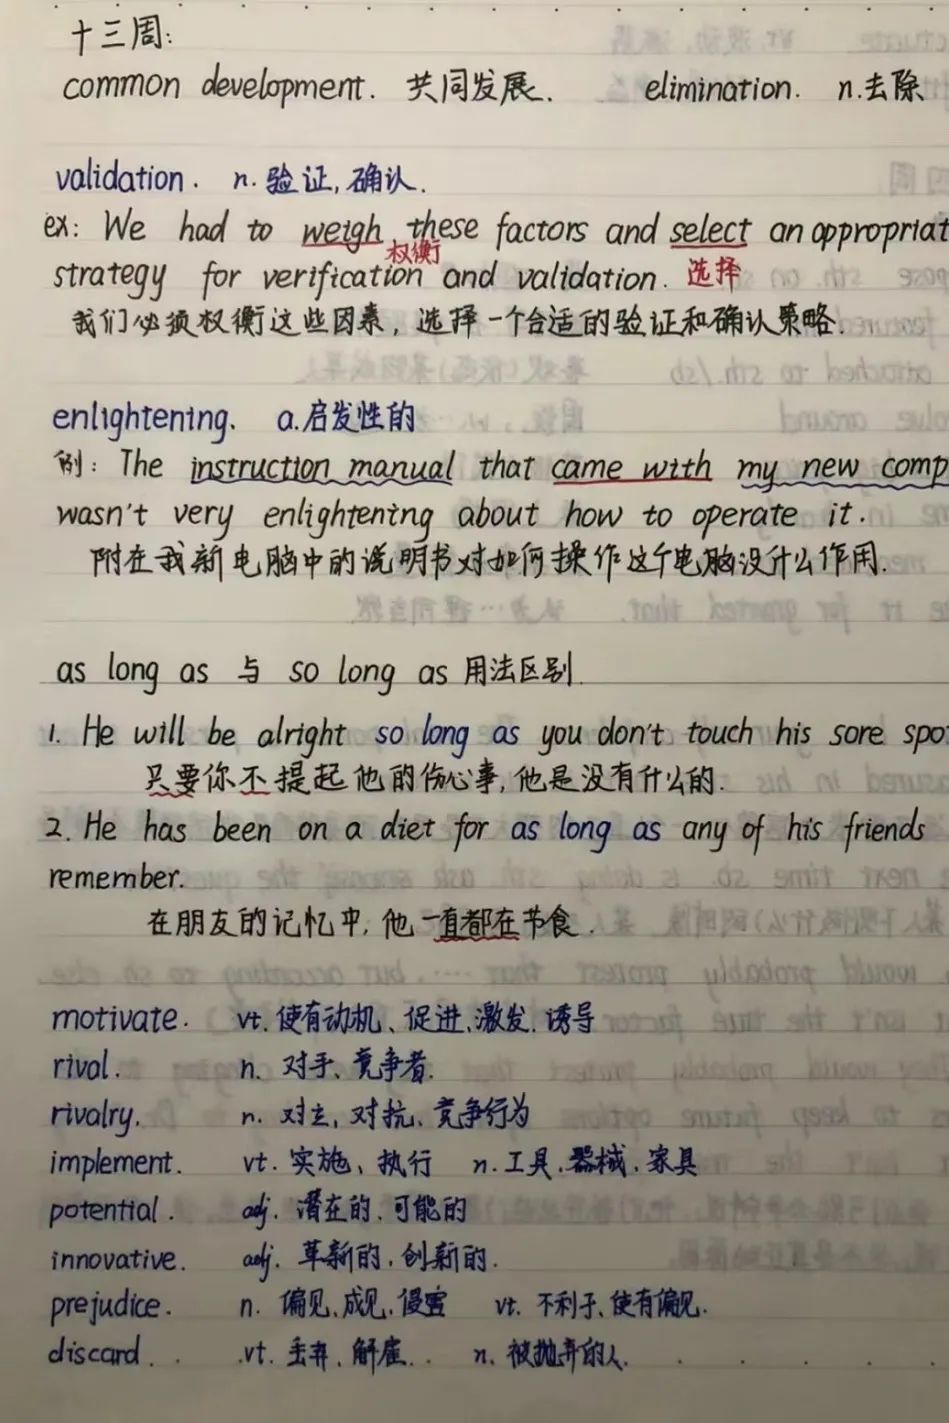 十三周:
common development. 共同发展. elimination. n.去除
validation. n.验证,确认.
ex: We had to weigh these factors and select an appropriat
权衡
strategy for verification and validation. 选择
我们必须权衡这些因素,选择一个合适的验证和确认策略.
enlightening. a.启发性的
例: The instruction manual that came with my new comp
wasn't very enlightening about how to operate it.
附在我新电脑中的说明书对如何操作这个电脑没什么作用.
as long as 与 so long as 用法区别
1. He will be alright so long as you don't touch his sore spo
只要你不提起他的伤心事,他是没有什么的.
2. He has been on a diet for as long as any of his friends
remember.
在朋友的记忆中,他一直都在节食.
motivate. vt.使有动机、促进、激发.诱导
rival. n. 对手、竞争者.
rivalry. n. 对立、对抗、竞争行为
implement. vt. 实施、执行 n.工具.器械.家具
potential. adj. 潜在的、可能的
innovative. adj. 革新的,创新的.
prejudice. n. 偏见、成见、侵害 vt. 不利于、使有偏见.
discard. vt. 丢弃、解雇. n. 被抛弃的人